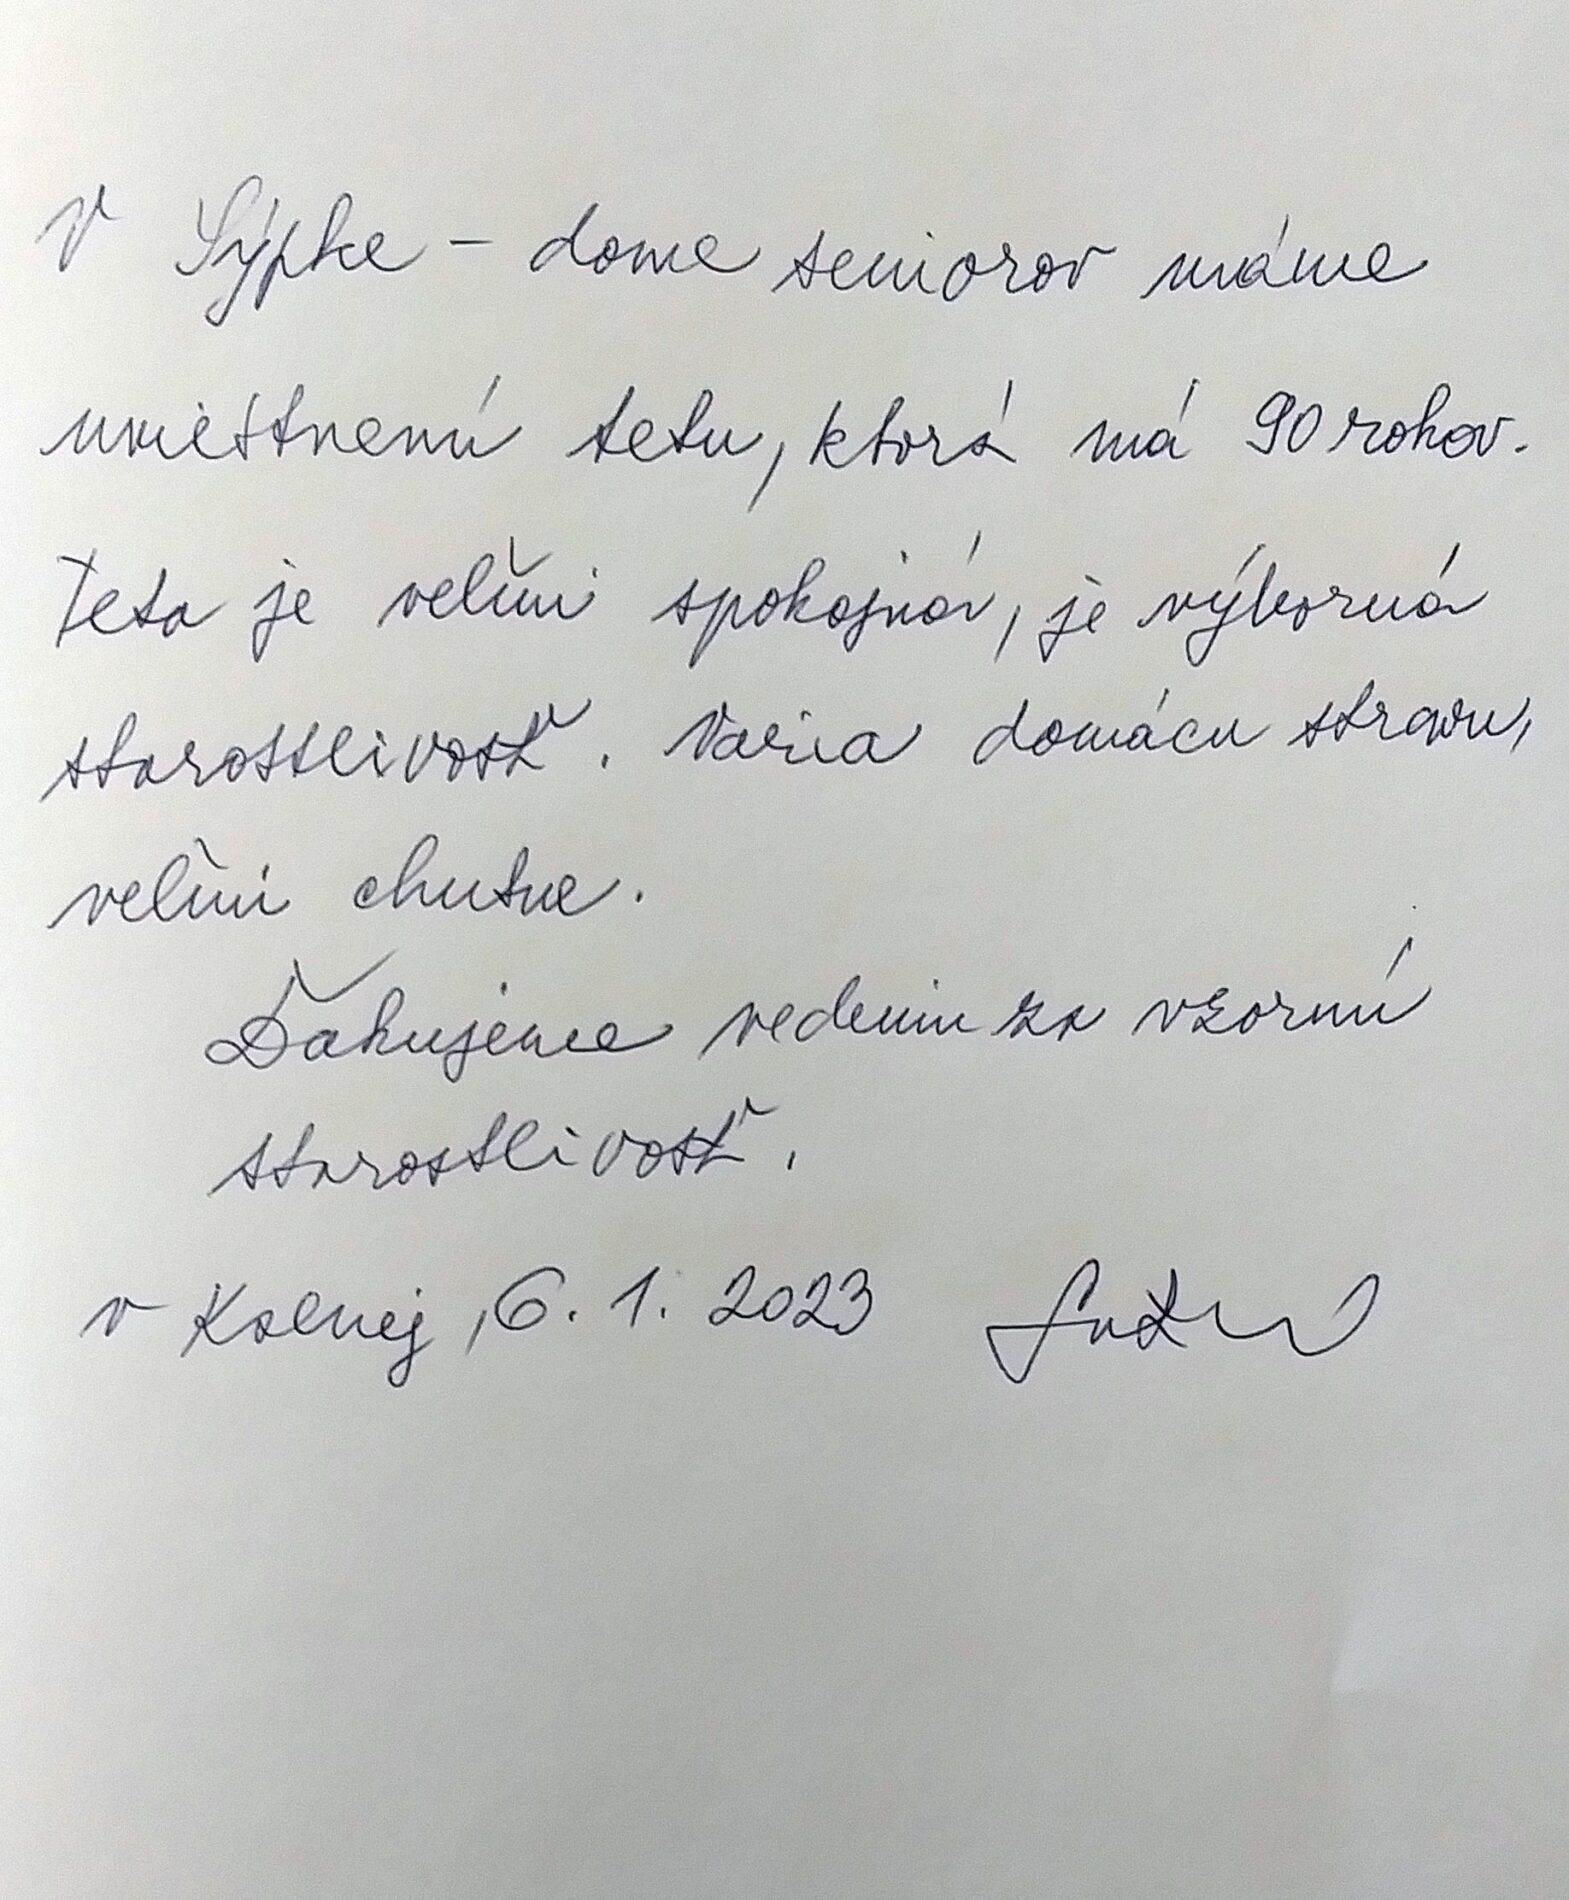 V Sýpke - dome seniorov máme
umiestnenú tetu, ktorá má 90 rokov.
Teta je veľmi spokojná, je výborná
starostlivosť. Varia domácu stravu,
veľmi chutne.
Ďakujeme vedeniu za vzornú
starostlivosť.
v Ksenej, 6. 1. 2023